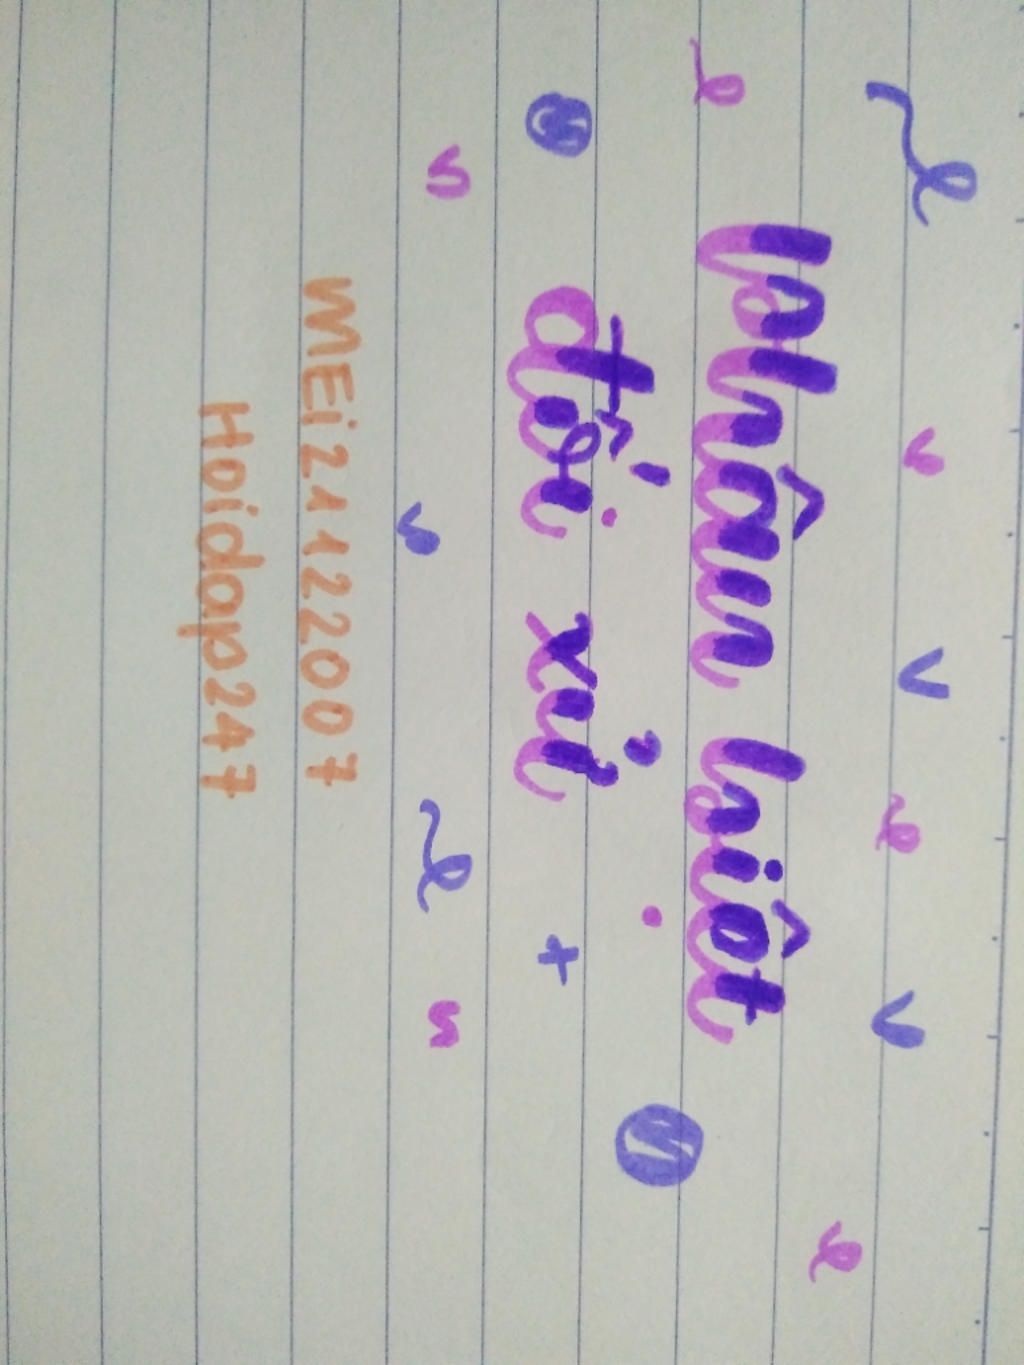 phân biệt
đối xử
MEi24122007
Hoidap247